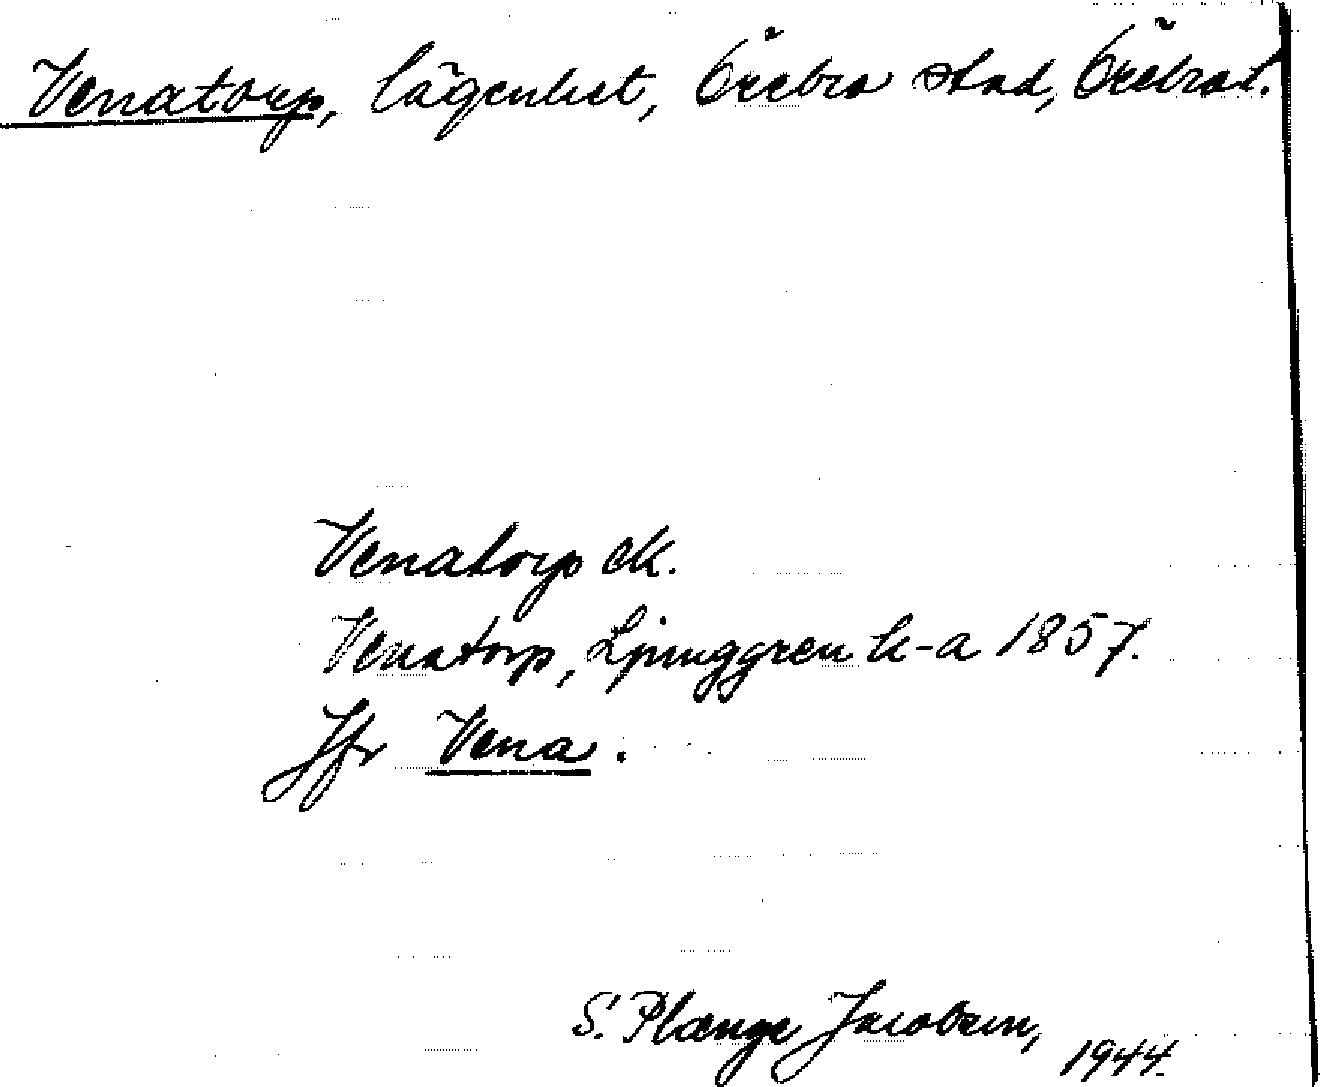 Venatorp, lägenhet, Örebro stad, Örebro l.
Venatorp ek.
Venatorp, Ljunggren k-a 1857.
Jfr Vena.
S. Plænge Jacobsen,
1944.